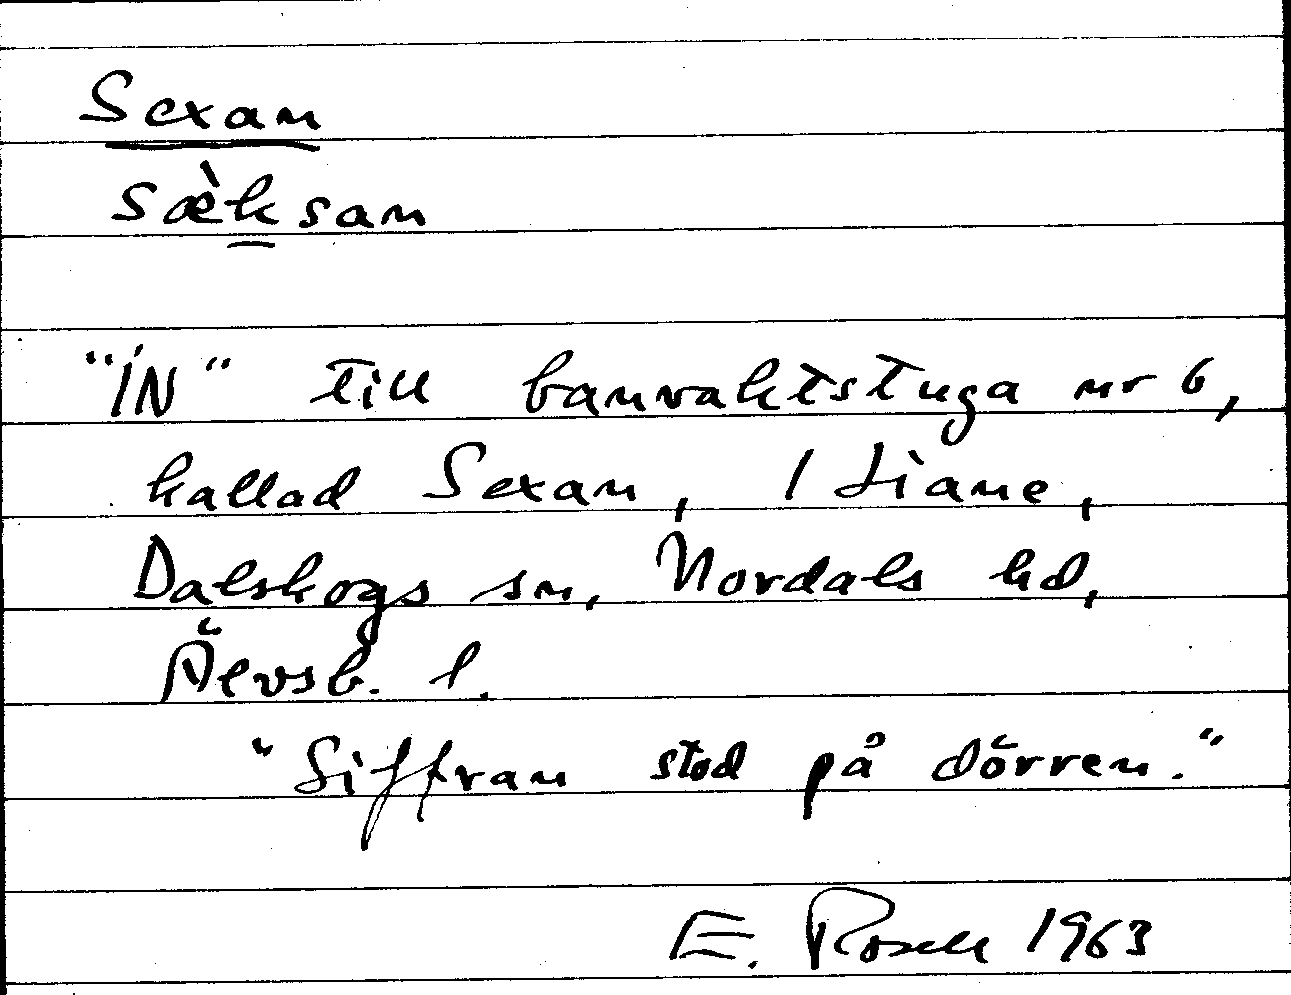 Sexan
sæ̀ksan
"ÍN" till banvaktstuga nr 6,
kallad Sexan, 1 Liane,
Dalskogs sn, Nordals hd,
Älvsb. l.
"Siffran stod på dörren."
E. Rosell 1963